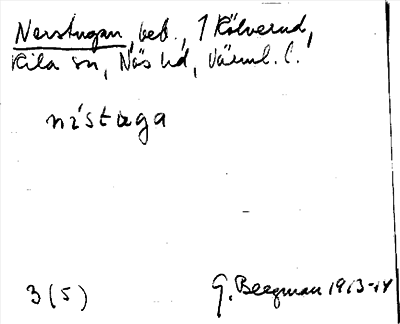 Nerstugan, beb., 1 Kölverud,
Kila sn, Näs hd, Värml. l.
nístuga
3 (5)
G. Bergman 1913-14